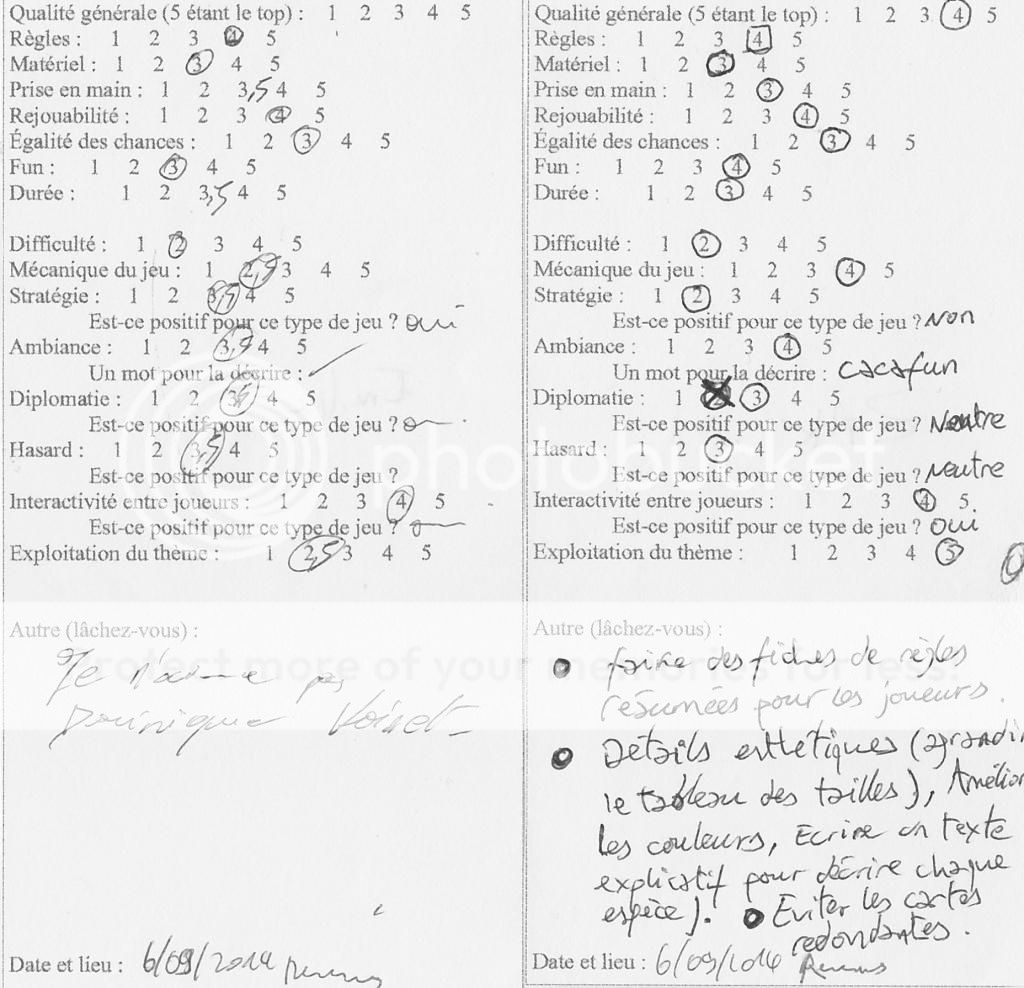 Qualité générale (5 étant le top) : 1 2 3 4 5
Règles : 1 2 3 4 5
Matériel : 1 2 3 4 5
Prise en main : 1 2 3,5 4 5
Rejouabilité : 1 2 3 4 5
Égalité des chances : 1 2 3 4 5
Fun : 1 2 3 4 5
Durée : 1 2 3,5 4 5
Difficulté : 1 2 3 4 5
Mécanique du jeu : 1 2,5 3 4 5
Stratégie : 1 2 3,5 4 5
Est-ce positif pour ce type de jeu ? oui
Ambiance : 1 2 3,5 4 5
Un mot pour la décrire :
Diplomatie : 1 2 3,5 4 5
Est-ce positif pour ce type de jeu ?
Hasard : 1 2 3,5 4 5
Est-ce positif pour ce type de jeu ?
Interactivité entre joueurs : 1 2 3 4 5
Est-ce positif pour ce type de jeu ?
Exploitation du thème : 1 2,5 3 4 5
Autre (lâchez-vous) :
Je n'aime pas
Dominique Voinet
Date et lieu : 6/09/2014
Qualité générale (5 étant le top) : 1 2 3 4 5
Règles : 1 2 3 4 5
Matériel : 1 2 3 4 5
Prise en main : 1 2 3 4 5
Rejouabilité : 1 2 3 4 5
Égalité des chances : 1 2 3 4 5
Fun : 1 2 3 4 5
Durée : 1 2 3 4 5
Difficulté : 1 2 3 4 5
Mécanique du jeu : 1 2 3 4 5
Stratégie : 1 2 3 4 5
Est-ce positif pour ce type de jeu ? Non
Ambiance : 1 2 3 4 5
Un mot pour la décrire : cacafun
Diplomatie : 1 2 3 4 5
Est-ce positif pour ce type de jeu ? Neutre
Hasard : 1 2 3 4 5
Est-ce positif pour ce type de jeu ? Neutre
Interactivité entre joueurs : 1 2 3 4 5
Est-ce positif pour ce type de jeu ? oui
Exploitation du thème : 1 2 3 4 5
Autre (lâchez-vous) :
faire des fiches de règles
résumées pour les joueurs.
Détails esthétiques (agrandir
le tableau des tailles), Amélior
les couleurs, Ecrire un texte
explicatif pour décrire chaque
espèce). Eviter les cartes
redondantes.
Date et lieu : 6/09/2014
photobucket
Protect more of your memories for less!